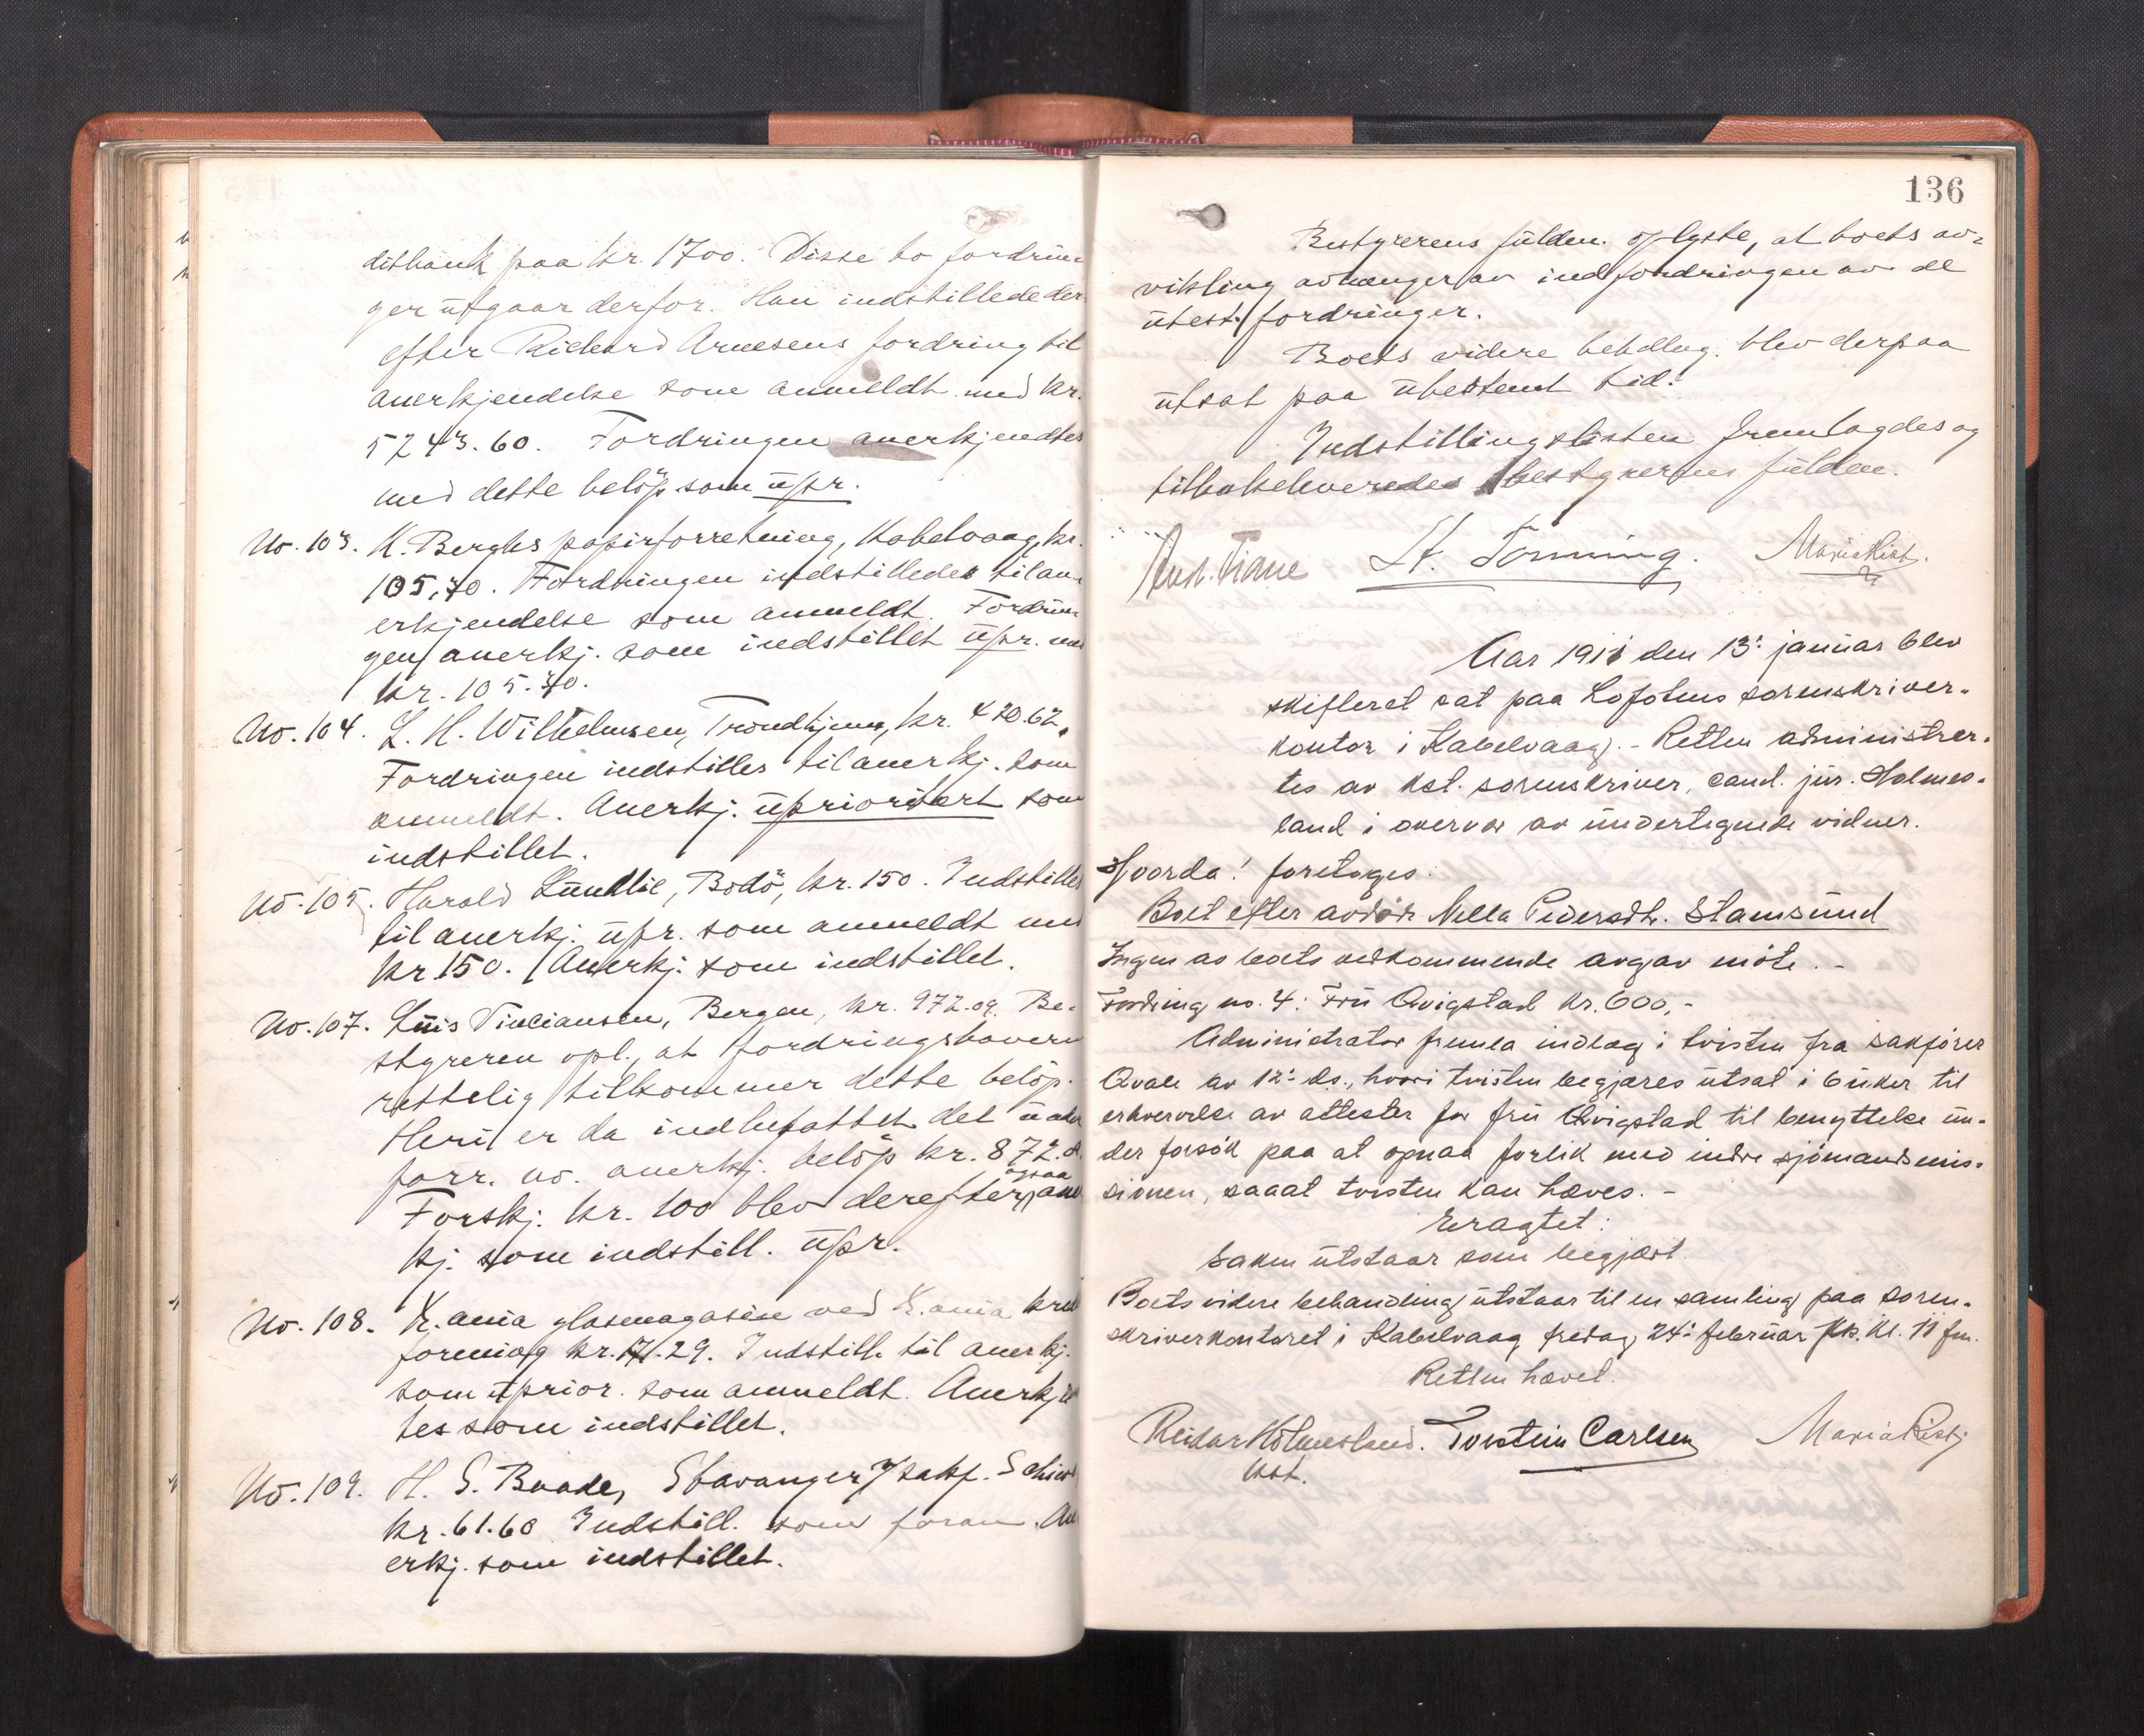 ditbank paa kr. 1700. Disse to fordrin-
ger utgaar derfor. Han indstillede der
efter Richard Arnesens fordring til
anerkjendelse som anmeldt med kr.
5243.60. Fordringen anerkjendtes
med dette beløp som upr.
No. 103. K. Berghs papirforretning, Kabelvaag, kr.
105,70. Fordringen indstilledes til an-
erkjendelse som anmeldt. Fordrin-
gen anerkj. som indstillet upr. med
kr. 105.70.
No. 104. L. H. Wilhelmsen, Trondhjem, kr. 420.62.
Fordringen indstilles til anerkj. som
anmeldt. Anerkj. uprioritert som
indstillet.
No. 105. Harold Lundlie, Bodö, kr. 150. Indstilles
til anerkj. upr. som anmeldt med
kr 150. Anerkj. som indstillet.
No. 107. Bergen, kr. 972.09. Be-
styreren opl., at fordringshaveren
rettelig tilkommer dette beløp.
Heri er da indbefattet det under
forr. no. anerkj. beløp kr. 872.
Forskj. kr. 100 blev derefter ogsaa aner
kj. som indstill. upr.
No. 108. Kr.ania glasmagasin ved Kr.ania kredit
forening kr. 171.29. Indstill. til anerkj.
som uprior. som anmeldt. Anerkjend
tes som indstillet.
No. 109. H. S. Baade, Stavanger v/ sakf.
kr. 61.60 Indstill. som foran. An
erkj. som indstillet.
136
Bestyrerens fuldm. oplyste, at boets av-
vikling avhænger av indfordringen av de
utest. fordringer.
Boets videre behdlng. blev derpaa
utsat paa ubestemt tid.
Indstillingslisten fremlagdes og
tilbakeleveredes bestyrerens fuldm.
St. Tonning. Maria Rist.
Aar 1911 den 13' januar blev
skifteret sat paa Lofotens sorenskriver-
kontor i Kabelvaag. - Retten administrer-
tes av kst. sorenskriver, cand. jur. Holmes-
land i overvær av undertegnede vidner.
Hvorda! foretoges:
Boet efter avdøde Nella Pedersdtr. Stamsund
Ingen av boets vedkommende avgav møte. -
Fordring no. 4: Fru Qvigstad kr. 600,-
Administrator fremla indlæg i tvisten fra sakfører
Qvale av 12' ds., hvori tvisten begjæres utsat i 6 uker til
erhvervelse av attester for fru Qvigstad til benyttelse un-
der forsøk paa at opnaa forlik med indre sjømandsmis-
sionen, saaat tvisten kan hæves. -
Eragtet:
Saken utstaar som begjært.
Boets videre behandling utstaar til en samling paa soren-
skriverkontoret i Kabelvaag fredag 24' februar fk. kl. 11 fm.
Retten hævet.
Reidar Holmesland. Torstein Carlsen Maria Rist
kst.